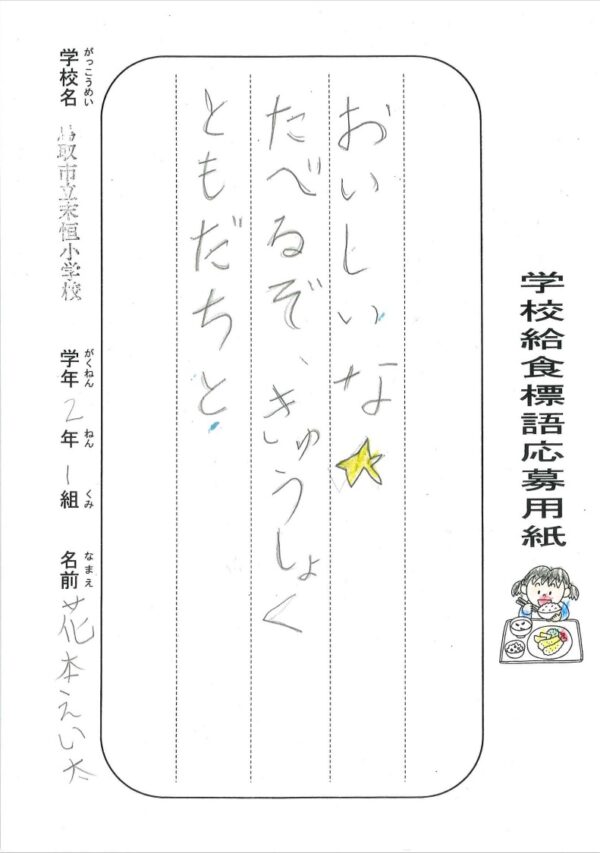 学校給食標語応募用紙
おいしいな
たべるぞ、きゅうしょく
ともだちと
学校名 がっこうめい 鳥取市立末恒小学校
学年 がくねん 2年 ねん 1組 くみ 名前 なまえ 花本えい太